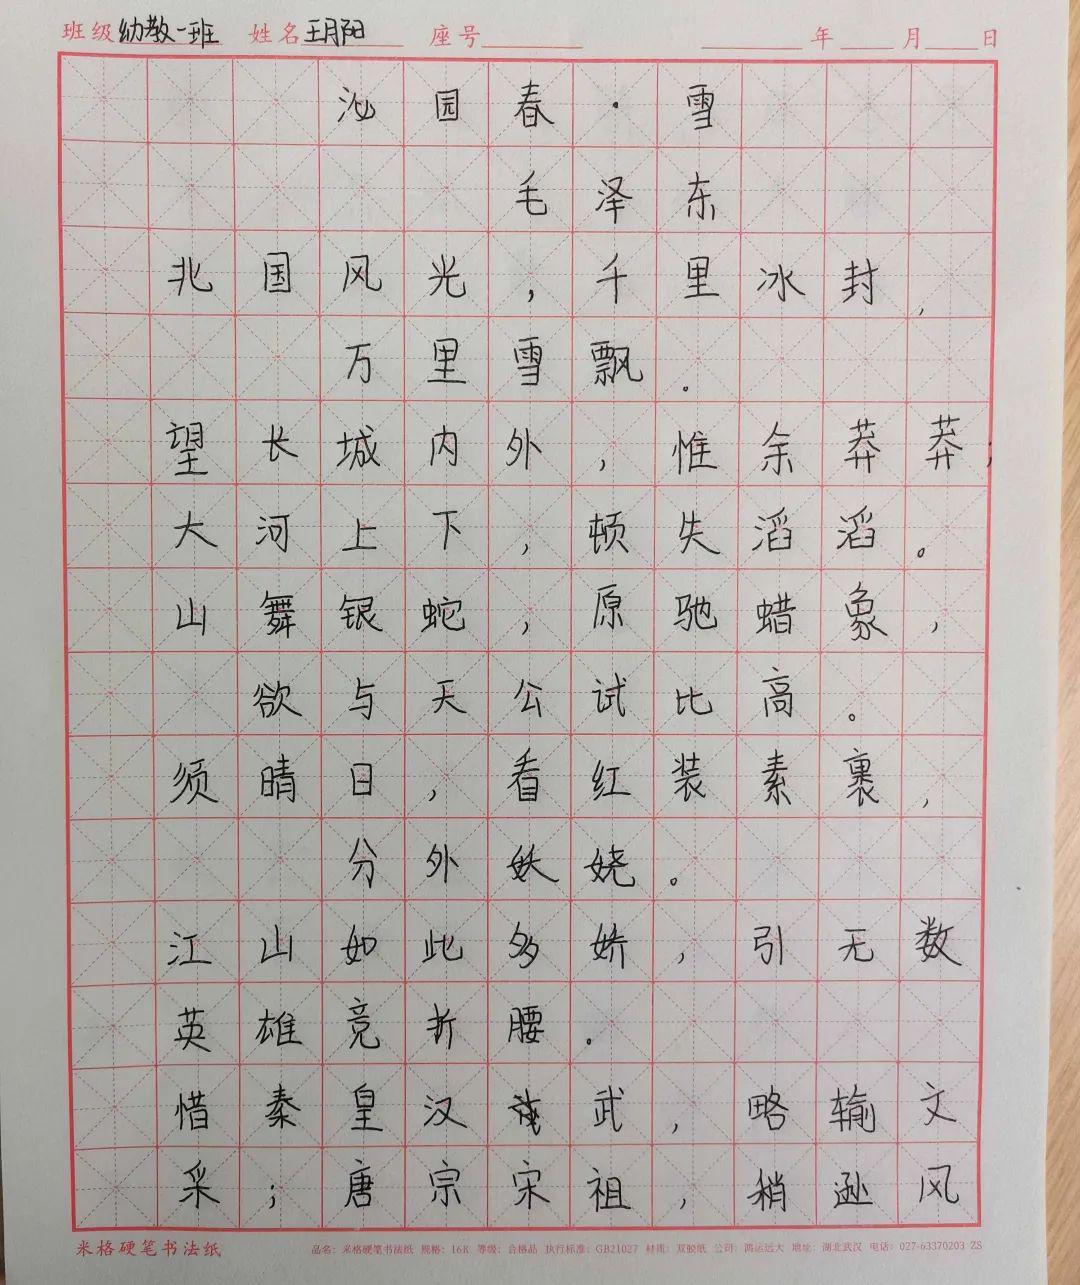 班级幼教一班 姓名王月阳 座号 年 月 日
沁园春·雪
毛泽东
北国风光，千里冰封，
万里雪飘。
望长城内外，惟余莽莽；
大河上下，顿失滔滔。
山舞银蛇，原驰蜡象，
欲与天公试比高。
须晴日，看红装素裹，
分外妖娆。
江山如此多娇，引无数
英雄竞折腰。
惜秦皇汉武，略输文
采；唐宗宋祖，稍逊风
米格硬笔书法纸 品名：米格硬笔书法纸 规格：16K 等级：合格品 执行标准：GB21027 材质：双胶纸 公司：鸿运远大 地址：湖北武汉 电话：027-63370203 ZS